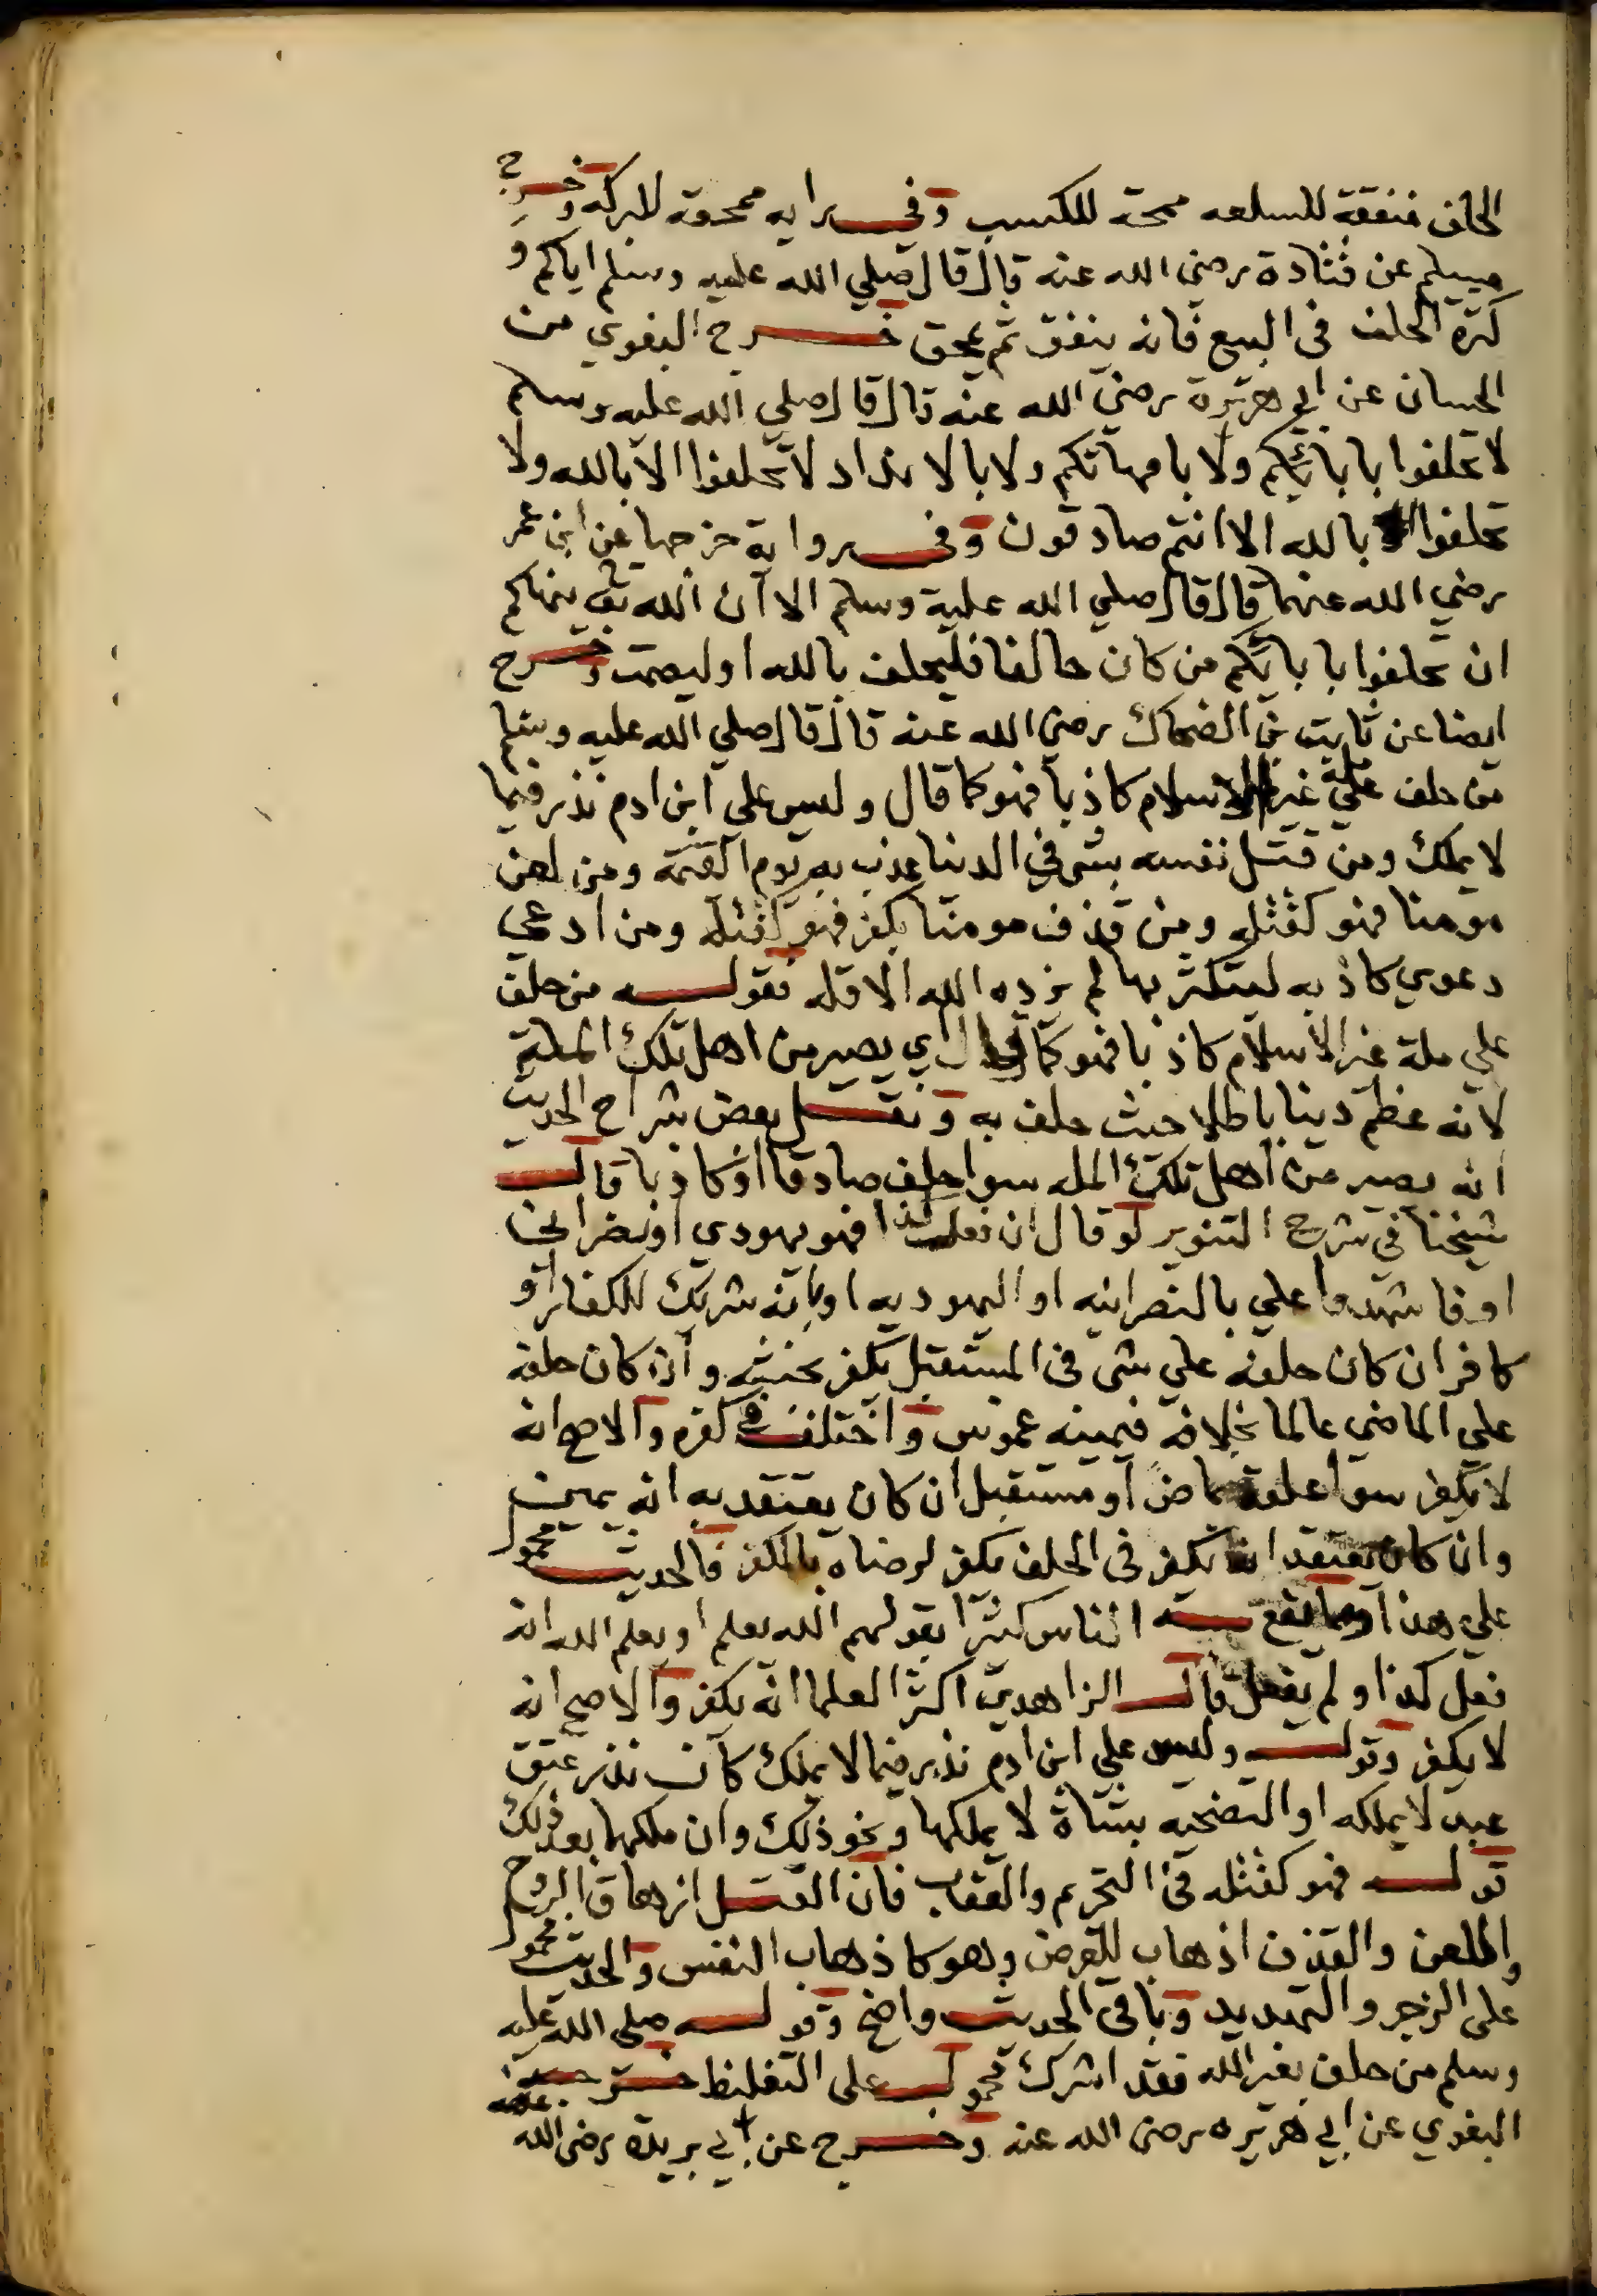 الحلف منفقة للسلعه ممحقة للكسب وفي رايه ممحقه للبركه وخرج
مسلم عن قتادة رضي الله عنه قال قال صلي الله عليه وسلم اياكم و
كثرة الحلف في البيع فانه ينفق ثم يمحق خرج البغوي من
الحسان عن ابي هريرة رضي الله عنه قال قال صلي الله عليه وسلم
لا تحلفوا بابائكم ولا بامهاتكم ولا بالانداد لا تحلفوا الا بالله ولا
تحلفوا بالله الا انتم صادقون وفي رواية خرجها عن ابن عمر
رضي الله عنهما قال قال صلي الله علية وسلم الا ان الله تع ينهاكم
ان تحلفوا بابائكم من كان حالفا فليحلف بالله او ليصمت وخرج
ايضا عن ثابت بن الضحاك رضي الله عنه قال قال صلي الله عليه وسلم
من حلف علي ملة غير الاسلام كاذبا فهو كما قال وليس علي ابن ادم نذر فيما
لا يملك ومن قتل نفسه بشي في الدنيا عذب به يوم القيمة ومن لعن
مومنا فهو كقتله ومن قذف مومنا بكفر فهو كقتله ومن ادعي
دعوي كاذبه ليتكثر بها لم يزده الله الا قله فقوله من حلف
علي ملة غير الاسلام كاذبا فهو كما قال اي يصير من اهل تلك الملة
لانه عظم دينا باطلا حيث حلف به ونقل بعض شراح الحديث
انه يصير من اهل تلك المله سوا حلف صادقا او كاذبا قال
شيخنا في شرح التنوير لو قال ان فعل كذا فهو يهودي او نصراني
او فاشهدوا علي بالنصرانيه او اليهوديه او بانه شريك للكفار او
كافر ان كان حلفه علي شي في المستقبل يكفر بحنثه وان كان حلفه
علي الماضي عالما بخلافه فيمينه غموس واختلف في كفره والاصح انه
لا يكفر سوا علقه بماض او مستقبل ان كان يعتقد به انه يمين
وان كان يعتقد انه يكفر في الحلف يكفر لرضاه بالكفر فالحديث محمول
علي هذا ومما يقع به الناس كثيرا بقولهم الله يعلم او يعلم الله انه
فعل كذا او لم يفعل قال الزاهدي اكثر العلما انه يكفر والاصح انه
لا يكفر وقوله وليس علي ابن ادم نذر فيما لا يملك كان نذر عتق
عبد لا يملكه او التضحيه بشاة لا يملكها ونحو ذلك وان ملكها بعد ذلك
قوله فهو كقتله في التحريم والعقاب فان القتل ازهاق الروح
واللعن والقذف اذهاب للعرض وهو كاذهاب النفس والحديث محمول
على الزجر والتهديد وباقي الحديث واضح وقوله صلى الله عليه
وسلم من حلف بغير الله فقد اشرك محمول على التغليظ خرجه
البغوي عن ابي هريره رضى الله عنه وخرج عن ابي بريدة رضى الله عنه